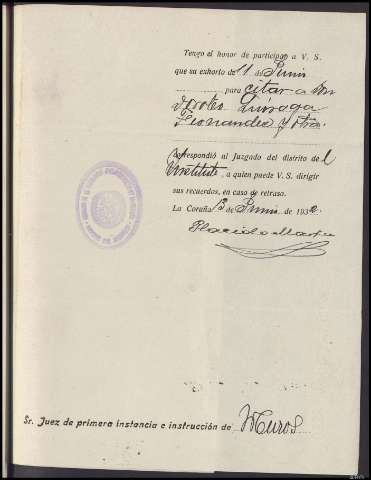 Tengo el honor de participar a V. S.
que su exhorto de 11 de Junio
para citar a Don
Doroteo Quiroga
Fernandez y otra.
correspondió al Juzgado del distrito del
Instituto, a quien puede V. S. dirigir
sus recuerdos, en caso de retraso.
La Coruña 13 de Junio de 193
Placido Martin
Sr. Juez de primera instancia e instrucción de Muros